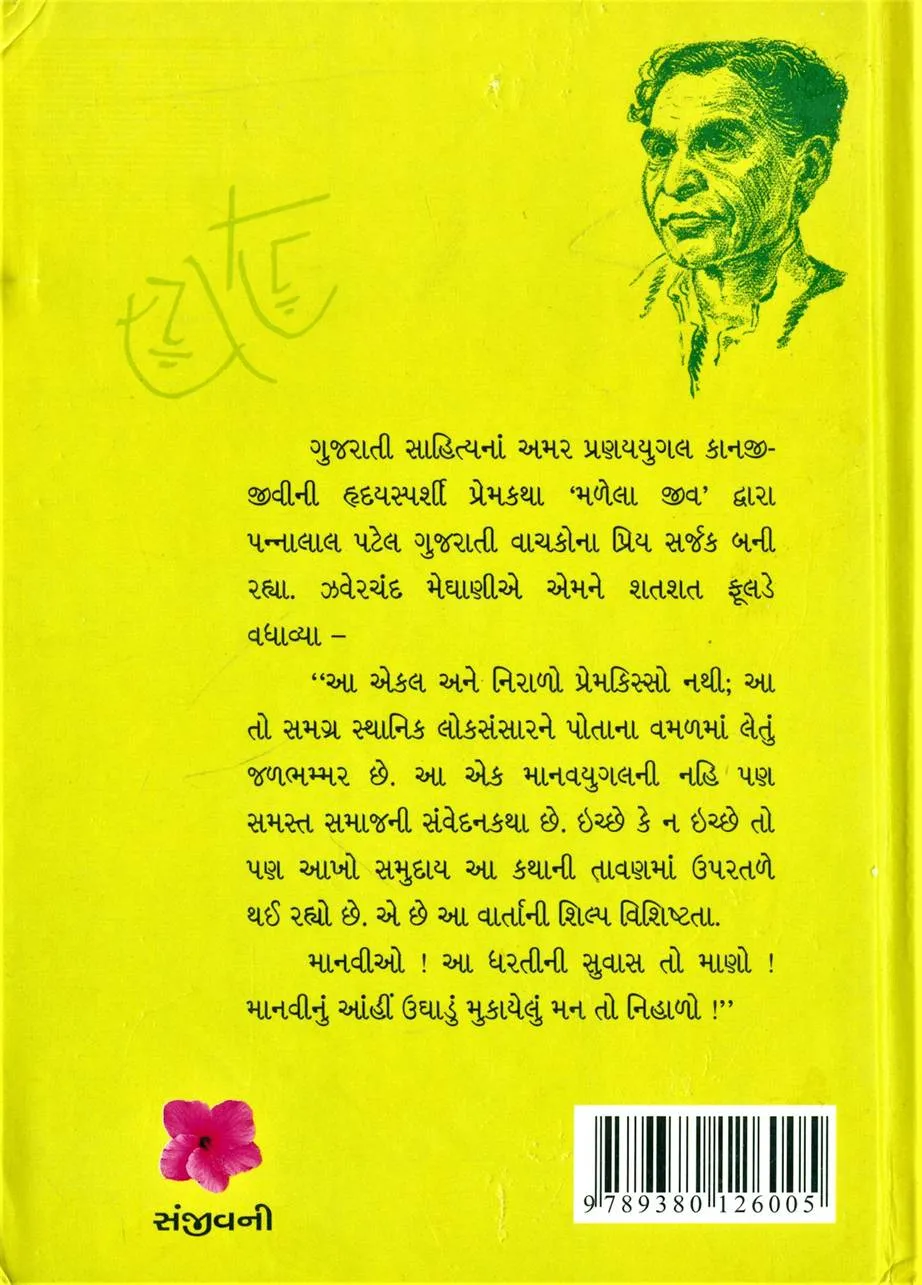 ગુજરાતી સાહિત્યનાં અમર પ્રણયયુગલ કાનજી-
જીવીની હૃદયસ્પર્શી પ્રેમકથા ‘મળેલા જીવ’ દ્વારા
પન્નાલાલ પટેલ ગુજરાતી વાચકોના પ્રિય સર્જક બની
રહ્યા. ઝવેરચંદ મેઘાણીએ એમને શતશત ફૂલડે
વધાવ્યા –
“આ એકલ અને નિરાળો પ્રેમકિસ્સો નથી; આ
તો સમગ્ર સ્થાનિક લોકસંસારને પોતાના વમળમાં લેતું
જળભમ્મર છે. આ એક માનવયુગલની નહિ પણ
સમસ્ત સમાજની સંવેદનકથા છે. ઇચ્છે કે ન ઇચ્છે તો
પણ આખો સમુદાય આ કથાની તાવણમાં ઉપરતળે
થઈ રહ્યો છે. એ છે આ વાર્તાની શિલ્પ વિશિષ્ટતા.
માનવીઓ ! આ ધરતીની સુવાસ તો માણો !
માનવીનું આંહીં ઉઘાડું મુકાયેલું મન તો નિહાળો !”
સંજીવની
9 789380 126005